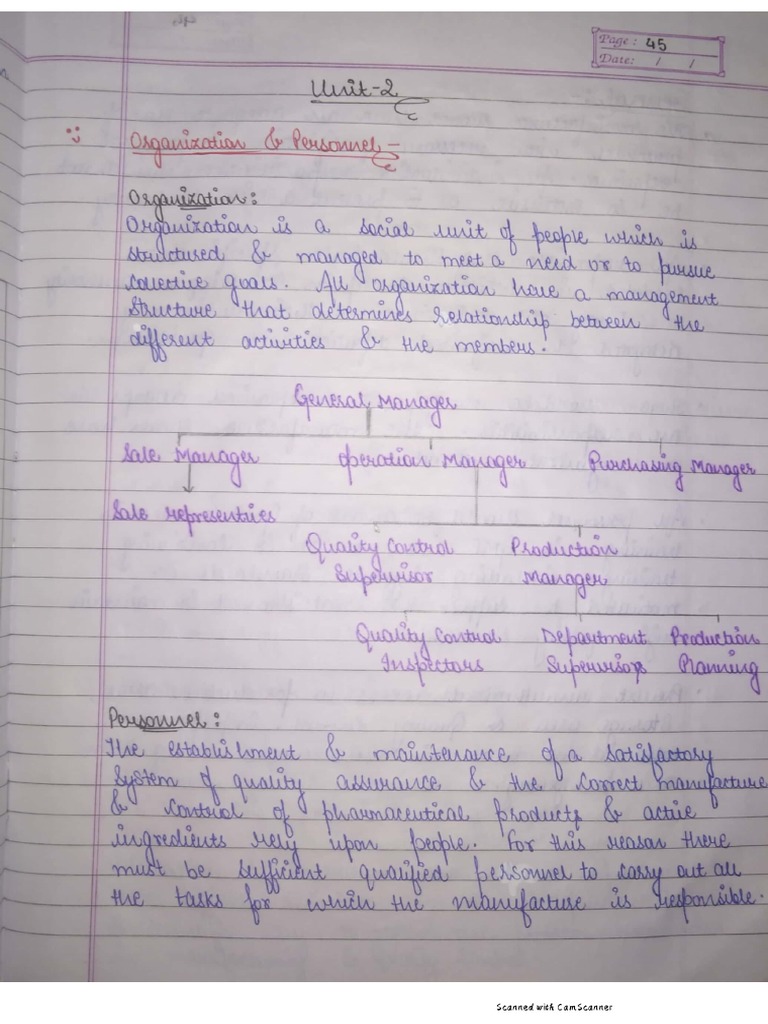 Page: 45
Date: / /
Unit-2
Organization & Personnel -
Organization:
Organization is a social unit of people which is
structured & managed to meet a need or to pursue
collective goals. All organization have a management
structure that determines relationship between the
different activities & the members.
General Manager
Sale Manager Operation Manager Purchasing Manager
Sale representries
Quality Control Production
Supervisor Manager
Quality Control Department Production
Inspectors Supervisors Planning
Personnel:
The establishment & maintenance of a satisfactory
system of quality assurance & the correct manufacture
& control of pharmaceutical products & active
ingredients rely upon people. For this reason there
must be sufficient qualified personnel to carry out all
the tasks for which the manufacture is responsible.
Scanned with CamScanner